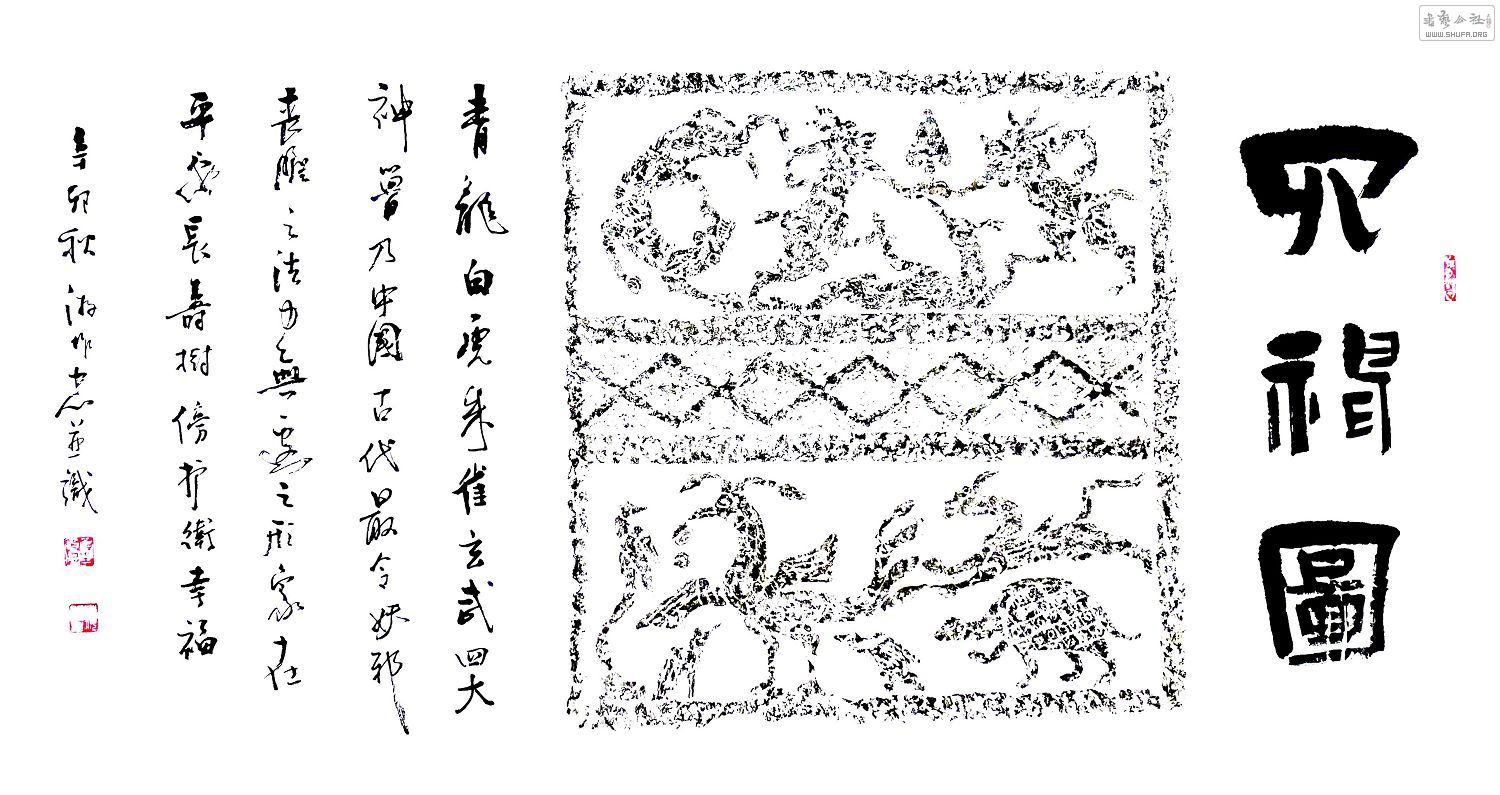 書藝公社
WWW.SHUFA.ORG
四神圖
青龍白虎朱雀玄武四大
神嘼乃中國古代最令妖邪
喪膽之法力無邊之形象在
平安長壽樹傍护衛幸福
辛卯秋 並識